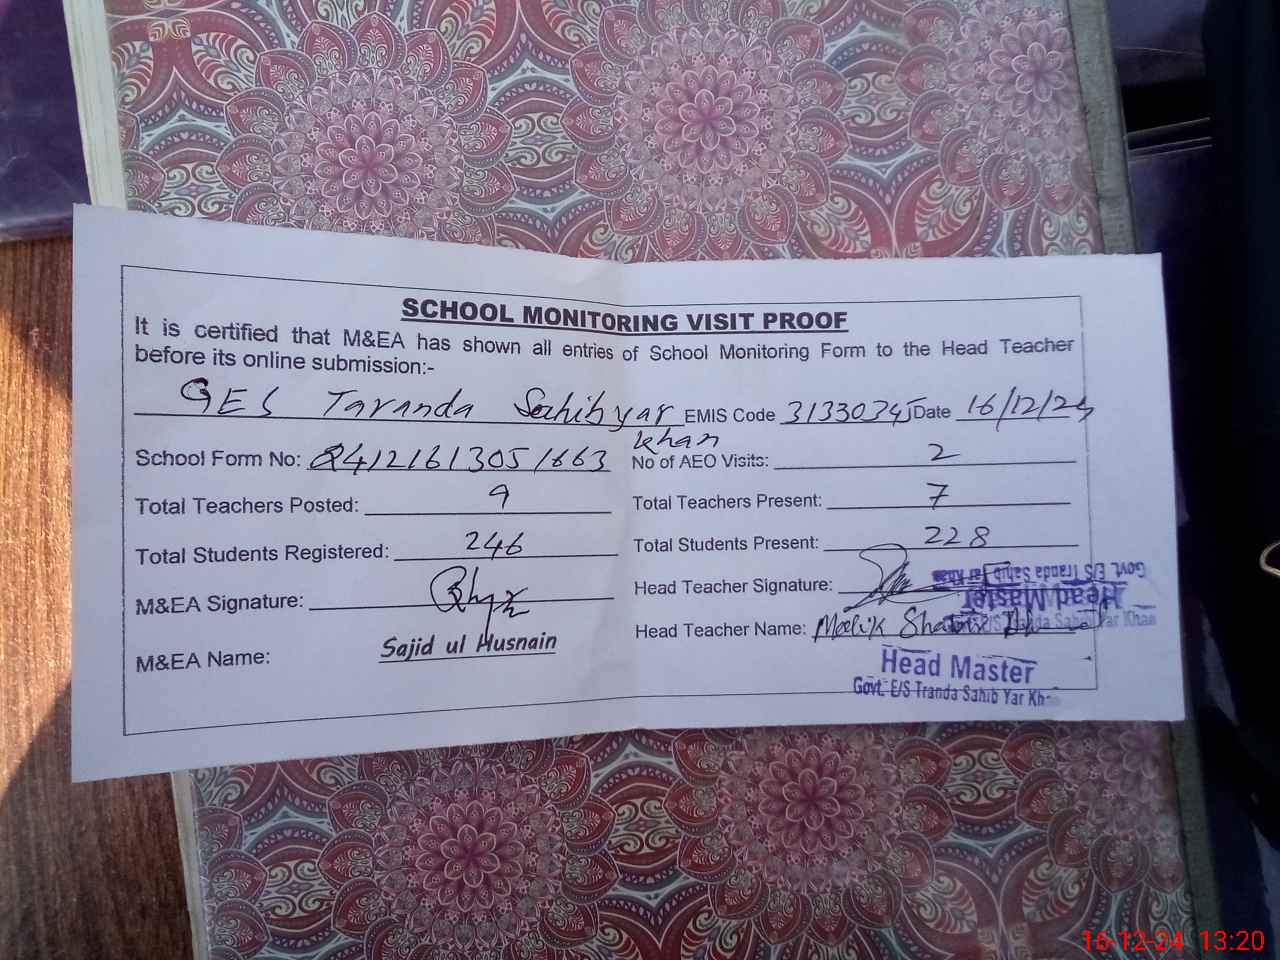 SCHOOL MONITORING VISIT PROOF
It is certified that M&EA has shown all entries of School Monitoring Form to the Head Teacher
before its online submission:-
GES Taranda Sahib yar khan EMIS Code 31330345 Date 16/12/24
School Form No: 24121613051663 No of AEO Visits: 2
Total Teachers Posted: 9 Total Teachers Present: 7
Total Students Registered: 246 Total Students Present: 228
M&EA Signature: Head Teacher Signature:
Govt. E/S Tranda Sahib Yar Khan
Head Master
M&EA Name: Sajid ul Husnain Head Teacher Name: Malik
E/S Tranda Sahib Yar Khan
Head Master
Govt. E/S Tranda Sahib Yar Kh
16-12-24 13:20